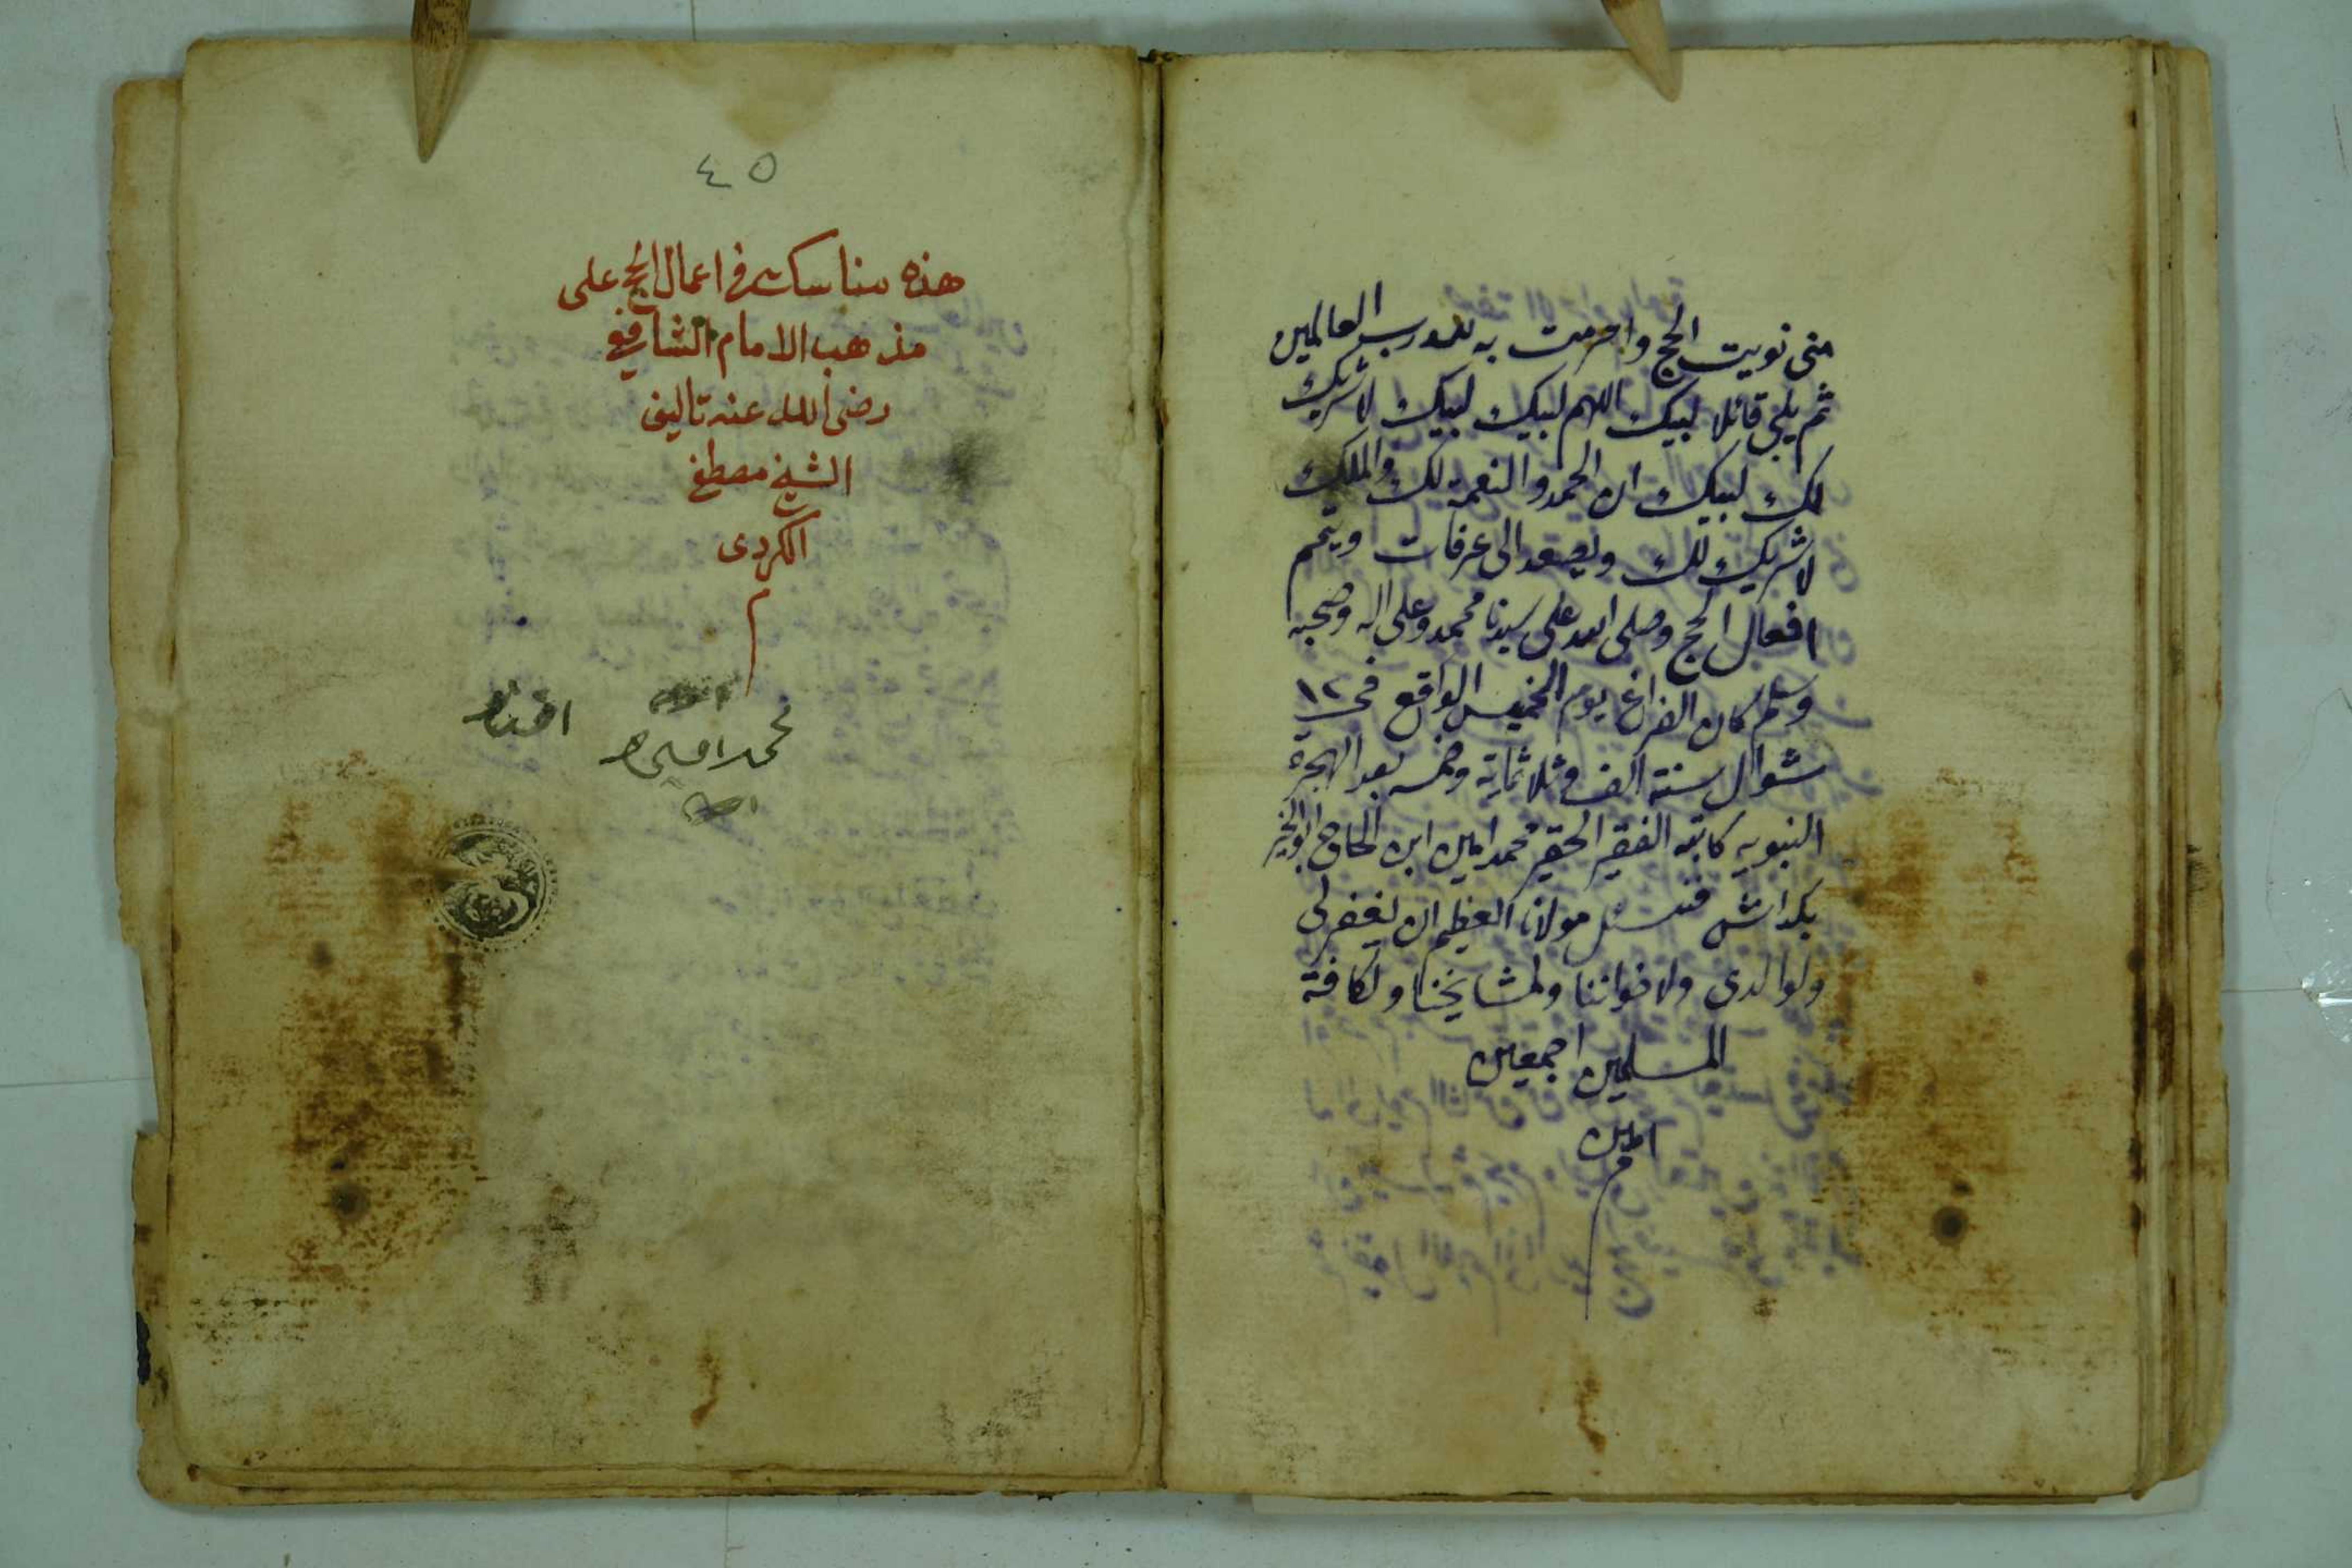 منى نويت الحج واحرمت به لله رب العالمين
ثم يلبي قائلا لبيك اللهم لبيك لبيك لا شريك
لك لبيك ان الحمد والنعمة لك والملك
لا شريك لك ويصعد الى عرفات ويتمم
افعال الحج وصلى الله على سيدنا محمد وعلى اله وصحبه
وسلم كان الفراغ يوم الخميس الواقع في ١٢
شوال سنة الف وثلاثماية وخمسه بعد الهجرة
النبويه كاتبه الفقير الحقير محمد امين ابن الحاج ابو الخير
بكداش فنسئل مولانا العظيم ان يغفر لي
ولوالدى ولاخواننا ولمشايخنا ولكافة
المسلمين اجمعين
امين
م
٤٥
هذه مناسك في اعمال الحج على
مذهب الامام الشافعي
رضى الله عنه تاليف
الشيخ مصطفى
الكردى
م
محمد